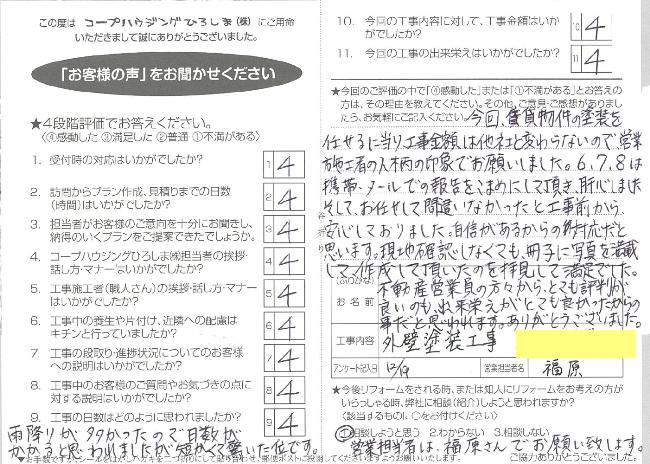 この度は コープハウジングひろしま(株) にご用命
いただきまして誠にありがとうございました。
「お客様の声」をお聞かせください
★4段階評価でお答えください。
〈④感動した ③満足した ②普通 ①不満がある〉
1. 受付時の対応はいかがでしたか?
1 4
2. 訪問からプラン作成、見積りまでの日数
(時間)はいかがでしたか?
2 4
3. 担当者がお客様のご意向を十分にお聞きし、
納得のいくプランをご提案できたでしょうか。
3 4
4. コープハウジングひろしま㈱担当者の挨拶・
話し方・マナーはいかがでしたか?
4 4
5. 工事施工者(職人さん)の挨拶・話し方・マナー
はいかがでしたか?
5 4
6. 工事中の養生や片付け、近隣への配慮は
キチンと行っていましたか?
6 4
7. 工事の段取り・進捗状況についてのお客様
への説明はいかがでしたか?
7 4
8. 工事中のお客様のご質問やお気づきの点に
対する説明はいかがでしたか?
8 4
9. 工事の日数はどのように思われましたか?
9 4
雨降りが多かったので日数が
かかると思いましたが短かくて驚いた位です。
10. 今回の工事内容に対して、工事金額はいか
がでしたか?
10 4
11. 今回の工事の出来栄えはいかがでしたか?
11 4
★今回のご評価の中で「④感動した」または「①不満がある」とお答え
の方は、その理由を教えてください。その他、ご意見・ご感想がありまし
たら、お気軽にご記入ください。
今回、賃貸物件の塗装を
任せるに当り工事金額は他社と変わらないので、営業
施工者の人柄の印象でお願いしました。6,7,8は
携帯・メールでの報告をこまめにして頂き、
そして、お任せして間違いなかったと工事前から
安心しておりました。自信があるからの対応だと
思います。現地確認しなくても、冊子に写真を満載
して作成して頂いたのを拝見して満足でした。
不動産営業員の方々から、とても評判が
良いのも、出来栄えがとても良かったからの
事だと思われます。ありがとうございました。
(ふりがな)
お名前
工事内容 外壁塗装工事
アンケート記入日 12/19 営業担当者名 福原
★今後リフォームをされる時、または知人にリフォームをお考えの方が
いらっしゃる時、弊社に相談(紹介)しようと思われますか?
(該当するものに、○をお付けください)
1.相談しようと思う 2.わからない 3.相談しない
営業担当者は、福原さんでお願い致します。
ご協力ありがとうございました。